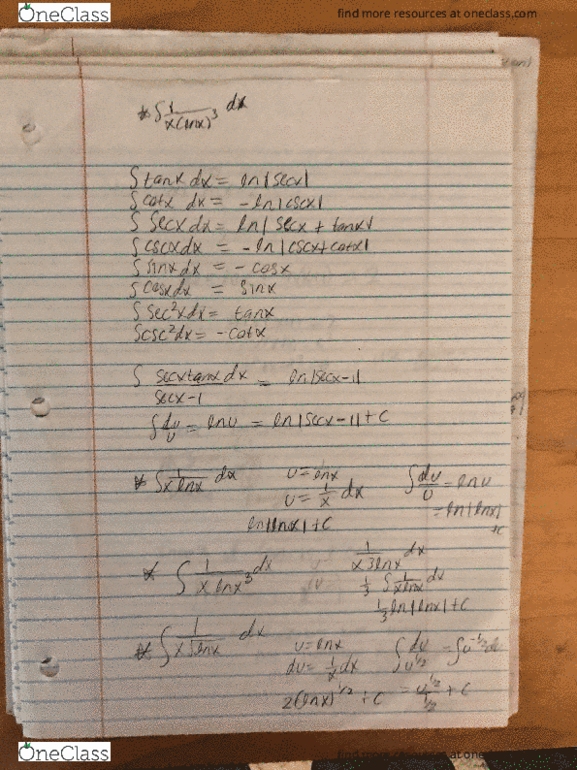 OneClass
find more resources at oneclass.com
* ∫ 1/(x(lnx)^3) dx
∫ tanx dx = ln|secx|
∫ cotx dx = -ln|cscx|
∫ secx dx = ln|secx + tanx|
∫ cscx dx = -ln|cscx+cotx|
∫ sinx dx = -cosx
∫ cosx dx = sinx
∫ sec²x dx = tanx
∫ csc² dx = -cotx
∫ secxtanx dx / secx-1 = ln|secx-1|
∫ du/u = lnu = ln|secx-1|+C
* ∫ 1/(xlnx) dx   u=lnx   ∫ du/u = lnu
u = 1/x dx   = ln|lnx|
ln|lnx|+C   +C
* ∫ 1/(x lnx^3) dx   1/(x3lnx) dx
1/3 ∫ 1/(xlnx) dx
1/3 ln|lnx|+C
* ∫ 1/(x√lnx) dx   u=lnx   ∫ du/u^1/2 = ∫ u^-1/2 du
du = 1/x dx
2(lnx)^1/2 + C   = u^1/2 / 1/2 + C
OneClass
find more resources at oneclass.com